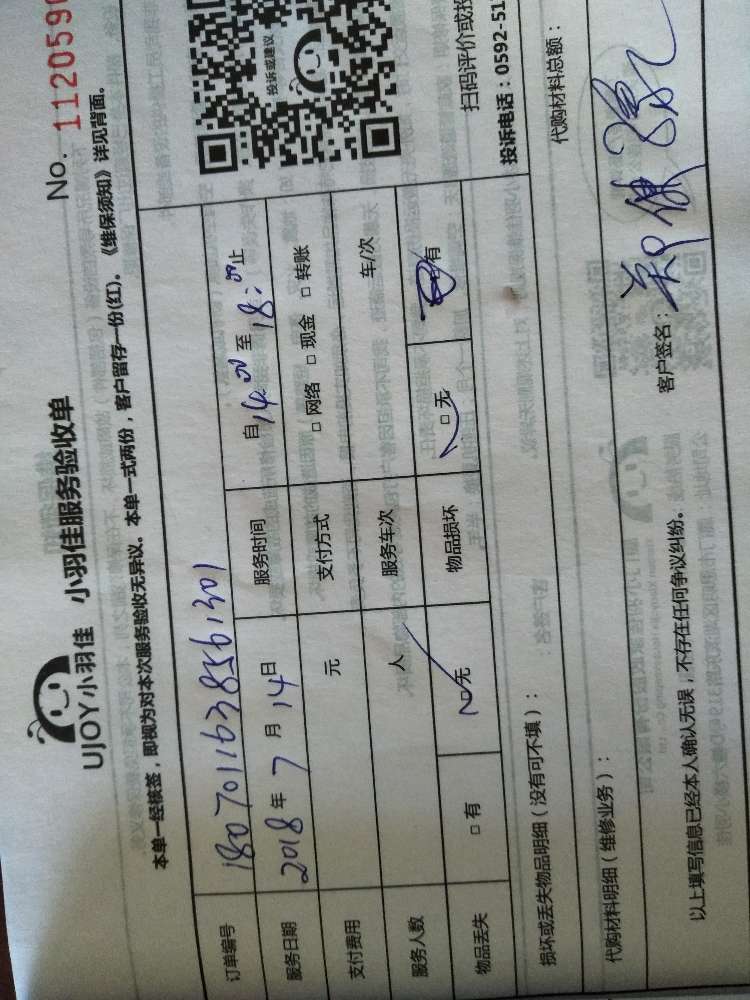 No. 1120590
UJOY小羽佳 小羽佳服务验收单
本单一经核签，即视为对本次服务验收无异议。本单一式两份，客户留存一份(红)。《维保须知》详见背面。
订单编号 1807011638561301
服务日期 2018年7月14日 服务时间 自14:00至18:00止
支付费用 元 支付方式 □网络 □现金 □转账
服务人数 人 服务车次 车/次
物品丢失 □有 □无 物品损坏 □无 □有
投诉或建议
扫码评价或投
投诉电话：0592-51
损坏或丢失物品明细（没有可不填）：
代购材料明细（维修业务）： 代购材料总额：
以上填写信息已经本人确认无误，不存在任何争议纠纷。 客户签名：